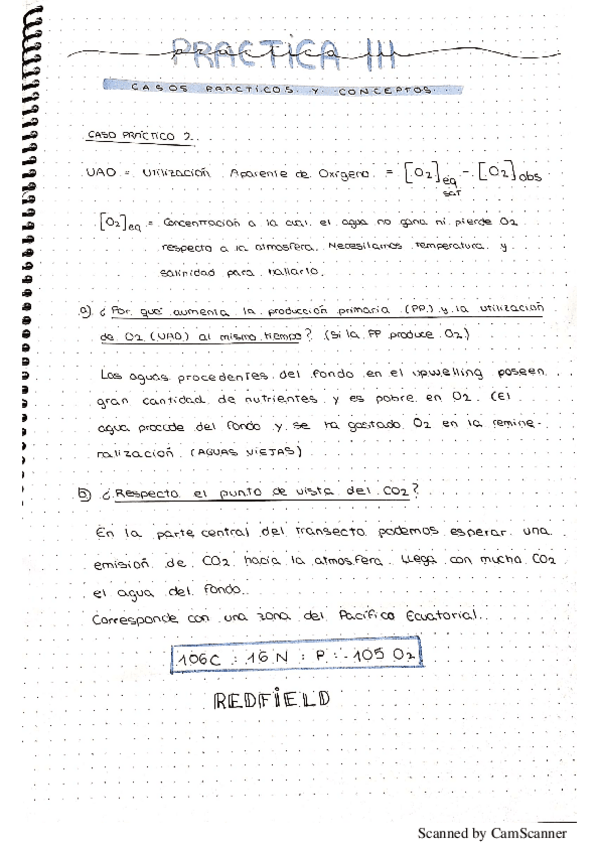 PRACTICA III
practica
CASOS PRÁCTICOS Y CONCEPTOS
CASO PRÁCTICO 2.
UAO = Utilización Aparente de Oxígeno. = [O2]eq - [O2]obs
sat
[O2]eq = Concentración a la cual el agua no gana ni pierde O2
respecto a la atmosfera. Necesitamos temperatura y
salinidad para hallarlo.
a) ¿Por qué aumenta la producción primaria (PP) y la utilización
de O2 (UAO) al mismo tiempo? (Si la PP produce O2)
Las aguas procedentes del fondo en el upwelling poseen
gran cantidad de nutrientes y es pobre en O2. (El
agua procede del fondo y se ha gastado O2 en la remine-
ralización. (AGUAS VIEJAS)
b) ¿Respecto el punto de vista del CO2?
En la parte central del transecto podemos esperar una
emisión de CO2 hacia la atmosfera. Llega con mucho CO2
el agua del fondo.
Corresponde con una zona del Pacífico Ecuatorial.
106C : 16 N : P : -105 O2
REDFIELD
Scanned by CamScanner